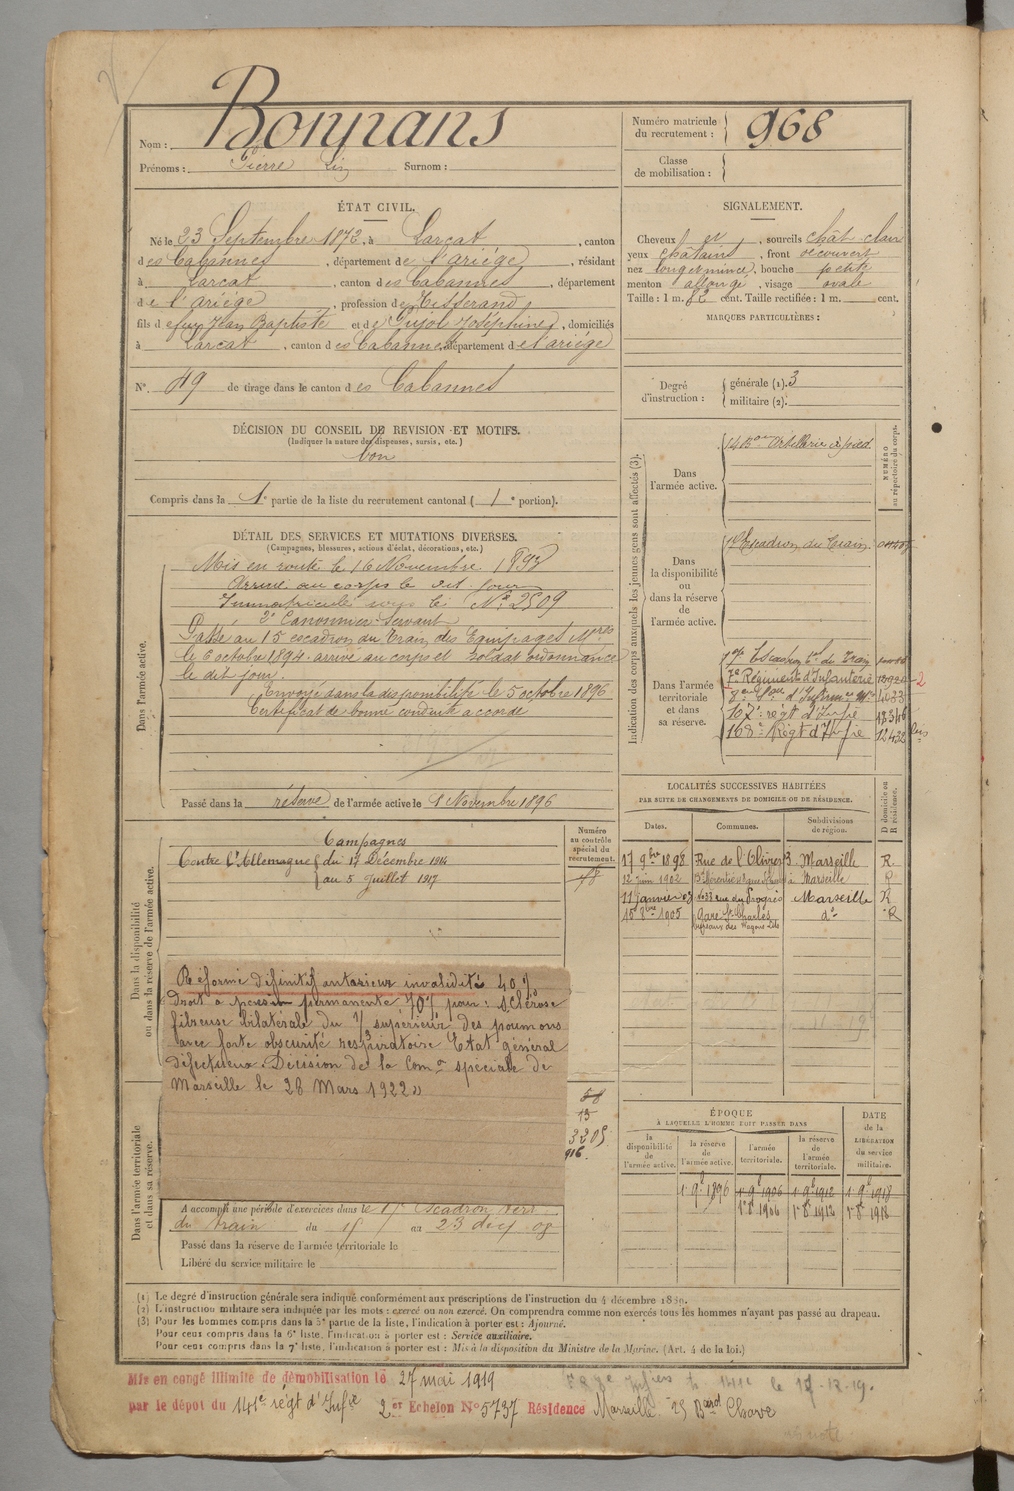 Nom : Bonnans
Prénoms : Pierre Surnom :
Numéro matricule du recrutement : 968
Classe de mobilisation :
ÉTAT CIVIL.
Né le 23 Septembre 1872, à Larcat, canton
des Cabannes, département de l'ariège, résidant
à Larcat, canton des Cabannes, département
de l'ariège, profession de Tisserand
fils de feu Jean Baptiste et de Pujol Joséphine, domiciliés
à Larcat, canton des Cabannes, département de l'ariège
N° 49 de tirage dans le canton des Cabannes
SIGNALEMENT.
Cheveux , sourcils chât. clair
yeux châtains, front découvert
nez long et mince, bouche petite
menton allongé, visage ovale
Taille : 1 m. cent. Taille rectifiée : 1 m. cent.
MARQUES PARTICULIÈRES :
Degré d'instruction : générale (1). 3
militaire (2).
DÉCISION DU CONSEIL DE REVISION ET MOTIFS.
(Indiquer la nature des dispenses, sursis, etc.)
bon
Compris dans la 1e partie de la liste du recrutement cantonal (1e portion).
DÉTAIL DES SERVICES ET MUTATIONS DIVERSES.
(Campagnes, blessures, actions d'éclat, décorations, etc.)
Dans l'armée active.
Mis en route le 16 Novembre 1893
Arrivé au corps le dit jour
Immatriculé sous le N° 2509
2e Canonnier Servant
Passé au 15 escadron du Train des Equipages Mres
le 6 octobre 1894. arrivé au corps et soldat ordonnance
le dit jour.
Envoyé dans la disponibilité le 5 octobre 1896
Certificat de bonne conduite accordé
Passé dans la réserve de l'armée active le 1 Novembre 1896
Indication des corps auxquels les jeunes gens sont affectés (3).
NUMÉRO au répertoire du corps.
Dans l'armée active.
14 Bon d'Artillerie à pied
Dans la disponibilité ou dans la réserve de l'armée active.
Escadron du Train
Dans l'armée territoriale et dans sa réserve.
Escadron du Train
7e Régiment d'Infanterie
8e d'Infirmiers 4033
107e régt d'Infie 18346
168e Régt d'Infie 12432 bis
LOCALITÉS SUCCESSIVES HABITÉES
PAR SUITE DE CHANGEMENTS DE DOMICILE OU DE RÉSIDENCE.
Dates. Communes. Subdivisions de région. D domicile ou R résidence.
17 9bre 1898 Rue de l'Olivier 3 Marseille R
12 juin 1902 à Marseille R
11 janvier 03 No 33 rue du Progrès Marseille R
15 8bre 1905 Gare St Charles do R
bureaux des Wagons Lits
Dans la disponibilité ou dans la réserve de l'armée active.
Numéro au contrôle spécial du recrutement.
Campagnes
Contre l'Allemagne du 17 Décembre 1914
au 5 Juillet 1917
Réformé définitif antérieur invalidité 40 %
droit à pension permanente 40 % pour : Sclérose
fibreuse bilatérale du 1/3 supérieur des poumons
avec forte obscurité respiratoire Etat général
défectueux. Décision de la Comon spéciale de
Marseille le 28 Mars 1922 »
58
15
3205
916
Dans l'armée territoriale et dans sa réserve.
A accompli une période d'exercices dans le 15e Escadron territ.
du train du 15 au 23 08
Passé dans la réserve de l'armée territoriale le
Libéré du service militaire le
ÉPOQUE
À LAQUELLE L'HOMME DOIT PASSER DANS
la disponibilité de l'armée active. la réserve de l'armée active. l'armée territoriale. la réserve de l'armée territoriale.
DATE de la LIBÉRATION du service militaire.
1 9e 1896 1 9e 1906 1 9e 1912 1 9e 1918
1 8e 1906 1 8e 1912 1 8e 1918
(1) Le degré d'instruction générale sera indiqué conformément aux prescriptions de l'instruction du 4 décembre 1889.
(2) L'instruction militaire sera indiquée par les mots : exercé ou non exercé. On comprendra comme non exercés tous les hommes n'ayant pas passé au drapeau.
(3) Pour les hommes compris dans la 5e partie de la liste, l'indication à porter est : Ajourné.
Pour ceux compris dans la 6e liste, l'indication à porter est : Service auxiliaire.
Pour ceux compris dans la 7e liste, l'indication à porter est : Mis à la disposition du Ministre de la Marine. (Art. 4 de la loi.)
Mis en congé illimité de démobilisation le 27 mai 1919
par le dépot du 141e régt d'Infie 2er Echelon No 5737 Résidence Marseille 25 Bard Chave